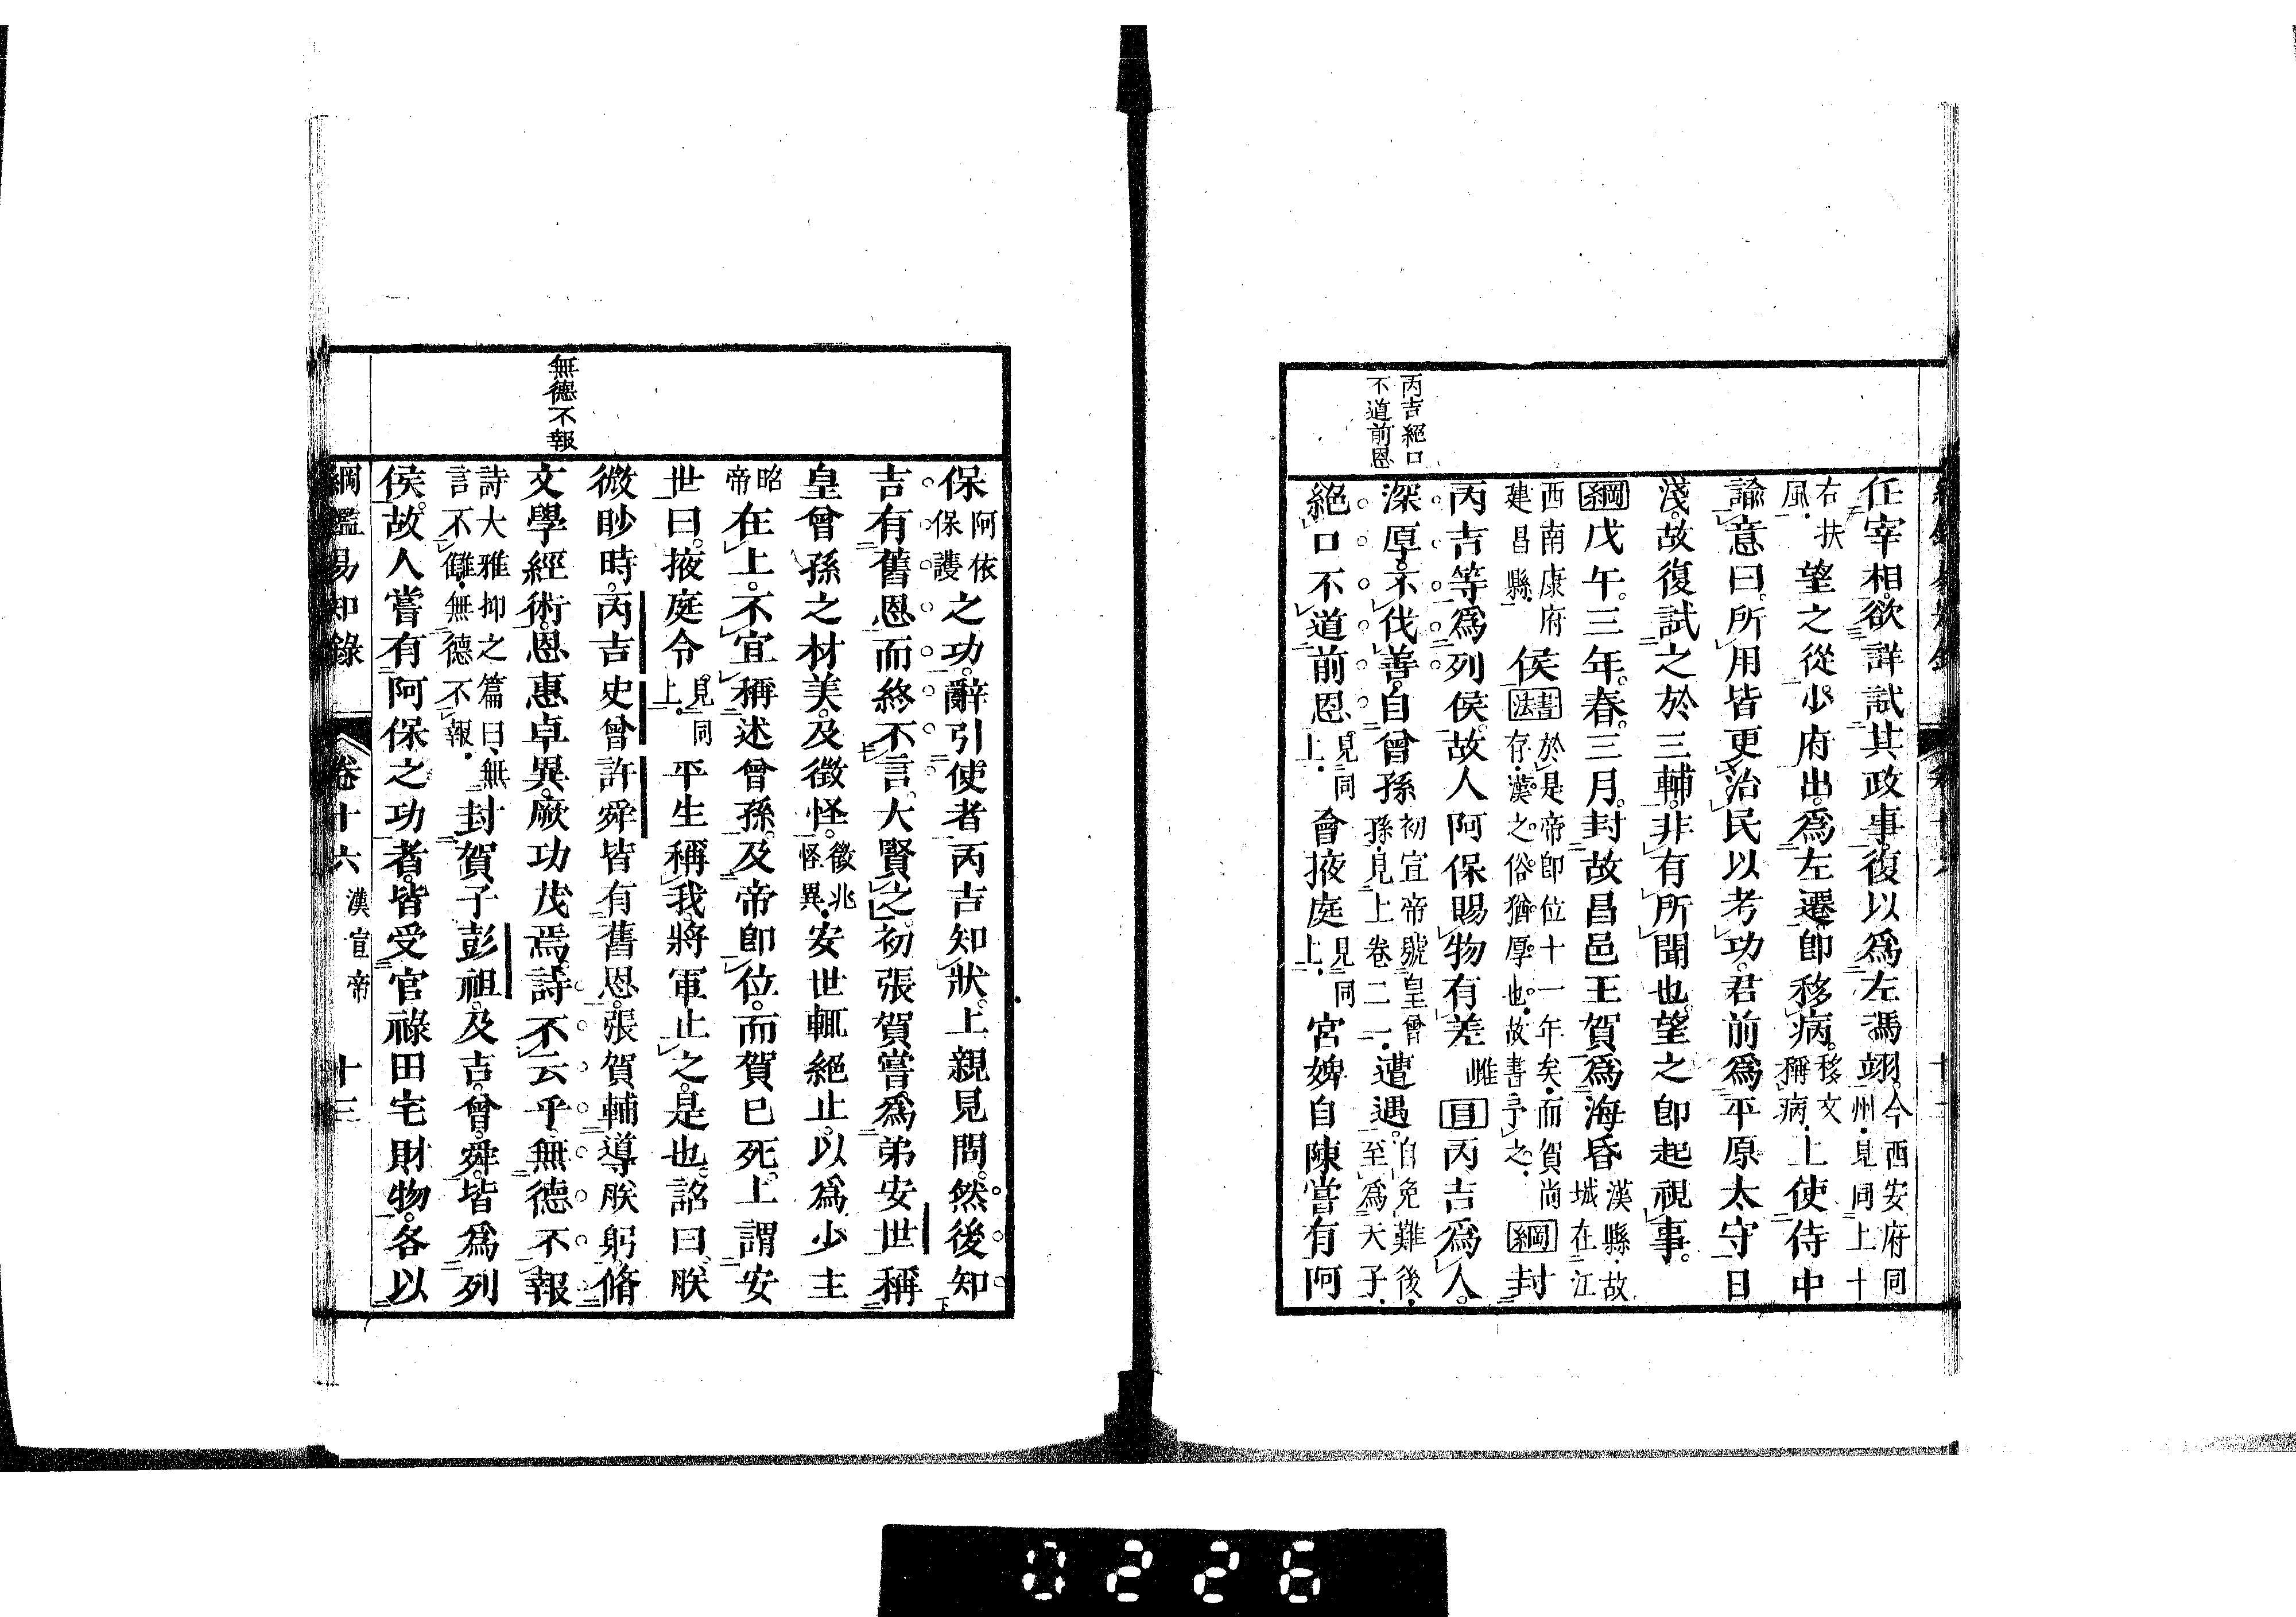 丙吉絕口
不道前恩
任宰相。欲詳試其政事。復以爲左馮翊。今西安府同州。見同上十
右扶風。望之從少府出。爲左遷。卽移病。移文稱病。上使侍中
諭意曰。所用皆更治民以考功。君前爲平原太守日
淺。故復試之於三輔。非有所聞也。望之卽起視事。
綱戊午。三年。春。三月。封故昌邑王賀爲海昏漢縣。故城在江
西南康府建昌縣。侯書法於是帝卽位十一年矣。而賀尚存。漢之俗猶厚也。故書予之。綱封
丙吉等爲列侯。故人阿保賜物有差雌目丙吉爲人。
深厚。不伐善。自曾孫初宣帝號皇曾孫。見上卷二一。遭遇。自免難後。至爲天子。
絕口不道前恩。見同上。會掖庭見同上。宮婢自陳嘗有阿
無德不報
保阿依保護之功。辭引使者丙吉知狀。上親見問。然後知
吉有舊恩。而終不言。大賢之。初張賀嘗爲弟安世稱
皇曾孫之材美。及徵怪。徵兆怪異。安世輒絕止。以爲少主
昭帝在上。不宜稱述曾孫。及帝卽位。而賀已死。上謂安
世曰。掖庭令見同上。平生稱我。將軍止之。是也。詔曰、朕
微眇時。丙吉史曾許舜皆有舊恩。張賀輔導朕躬。脩
文學經術。恩惠卓異。厥功茂焉。詩不云乎。無德不報
詩大雅抑之篇曰、無言不讎。無德不報。封賀子彭祖。及吉。曾。舜。皆爲列
侯。故人嘗有阿保之功者。皆受官祿田宅財物。各以
綱鑑易知錄 卷十六 漢宣帝 十三
0226